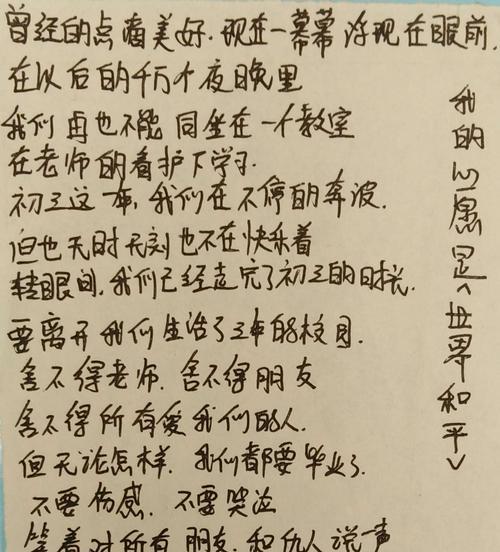 曾经的点滴美好.现在一幕幕浮现在眼前.
在以后的千万个夜晚里
我们再也不能同坐在一个教室
在老师的看护下学习.
初三这一年,我们在不停的奔波.
但也无时无刻也不在快乐着
转眼间,我们已经走完了初三的时光.
要离开我们生活了三年的校园.
舍不得老师.舍不得朋友
舍不得所有爱我们的人.
但无论怎样.我们都要毕业了.
不要伤感.不要哭泣
笑着对所有朋友.和仇人说一声
我的心愿是<世界和平>